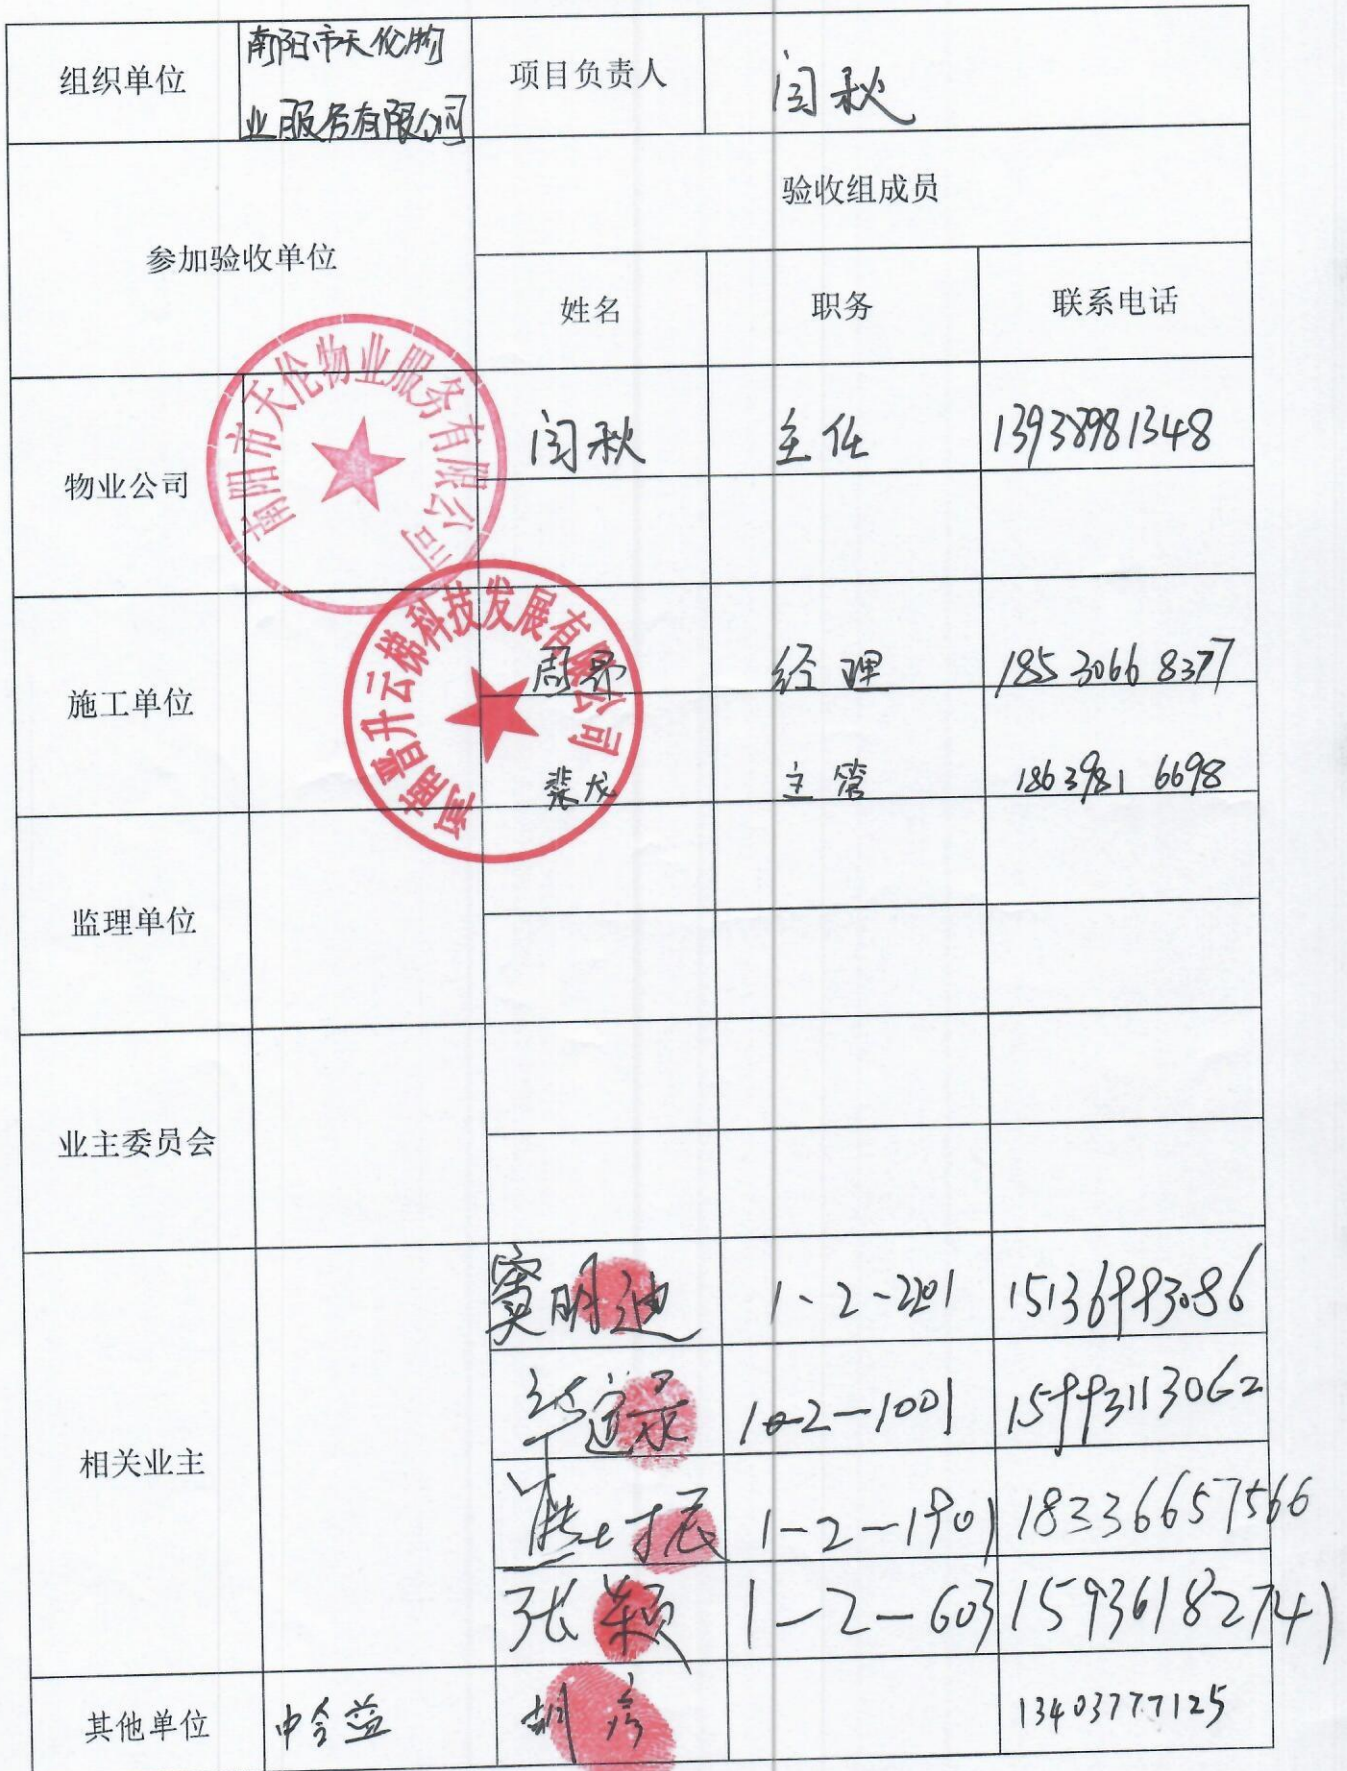 组织单位 南阳市天伦物 项目负责人 闫秋
业服务有限公司
验收组成员
参加验收单位
姓名 职务 联系电话
南阳市天伦物业服务有限公司
物业公司 闫秋 主任 13938981348
河南晋升云梯科技发展有限公司
施工单位 周 经理 18530668377
裴龙 主管 18639816698
监理单位
业主委员会
窦明迪 1-2-2201 15136993086
1-2-1001 15993113062
相关业主
1-2-1901 18336657566
张颖 1-2-603 15936182741
其他单位 中合益 胡彦 13403777125